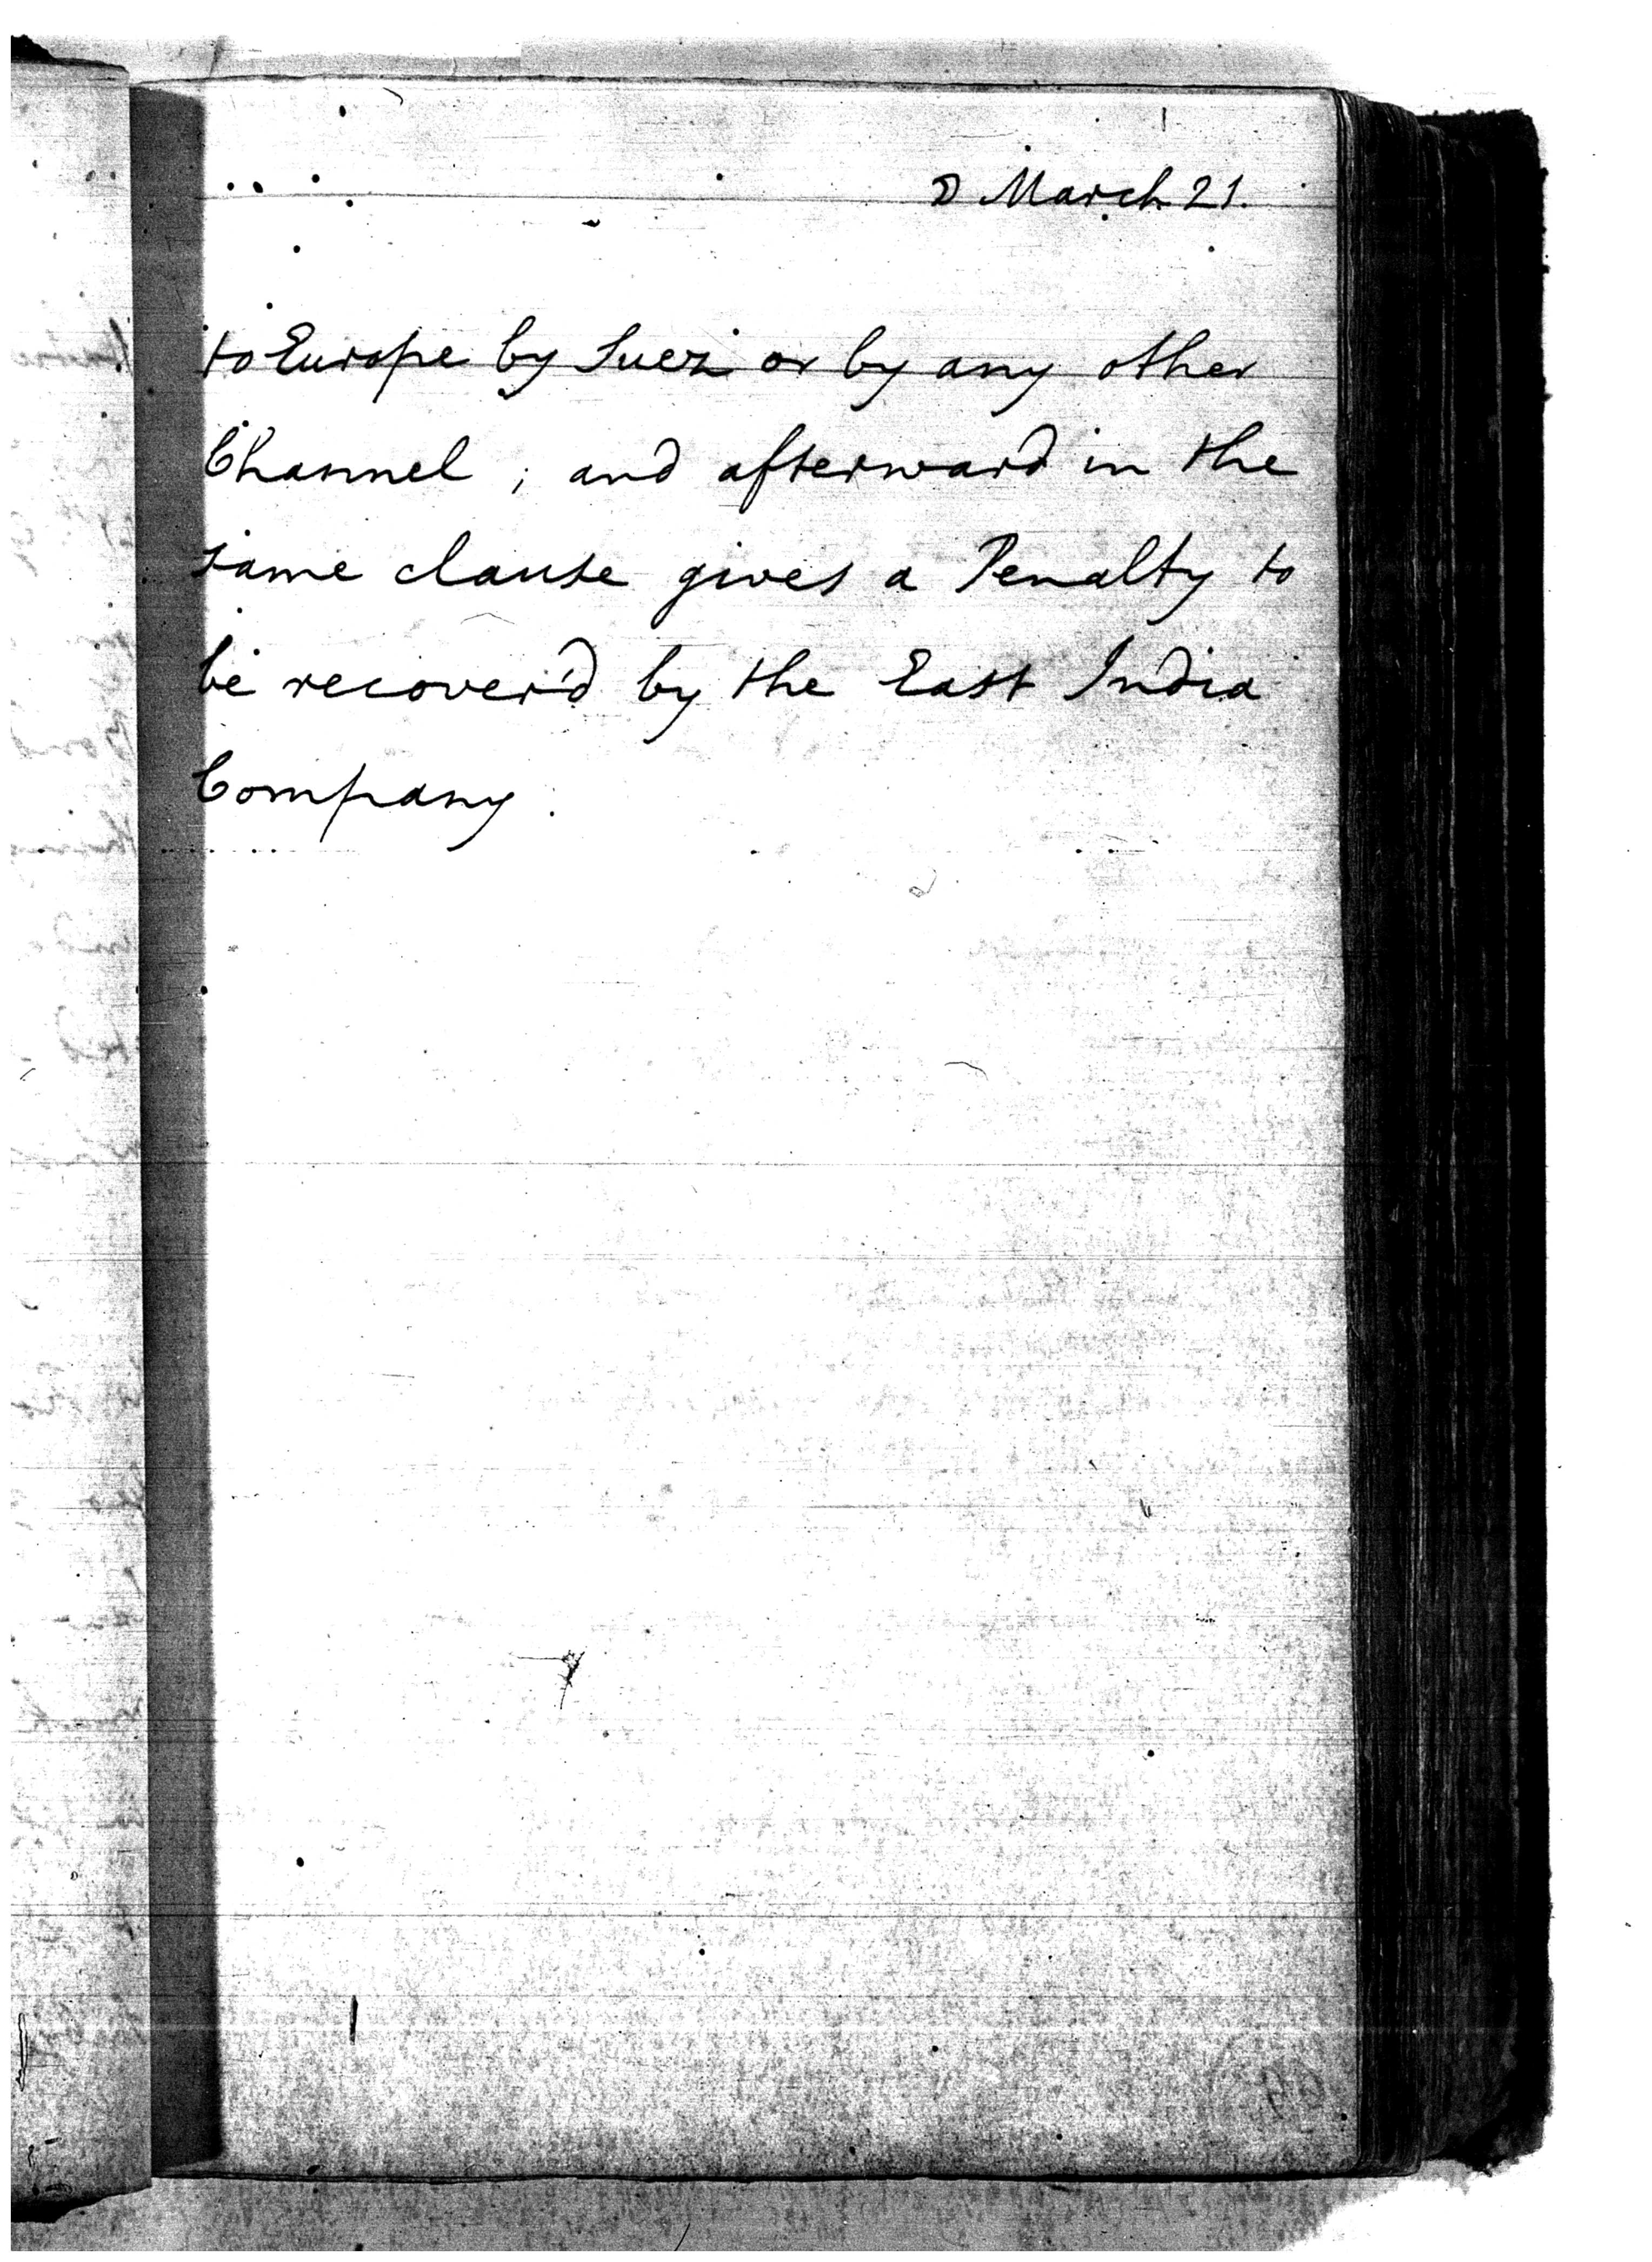 ☽ March 21.
to Europe by Suez or by any other
Channel ; and afterward in the
same clause gives a Penalty to
be recover'd by the East India
Company.